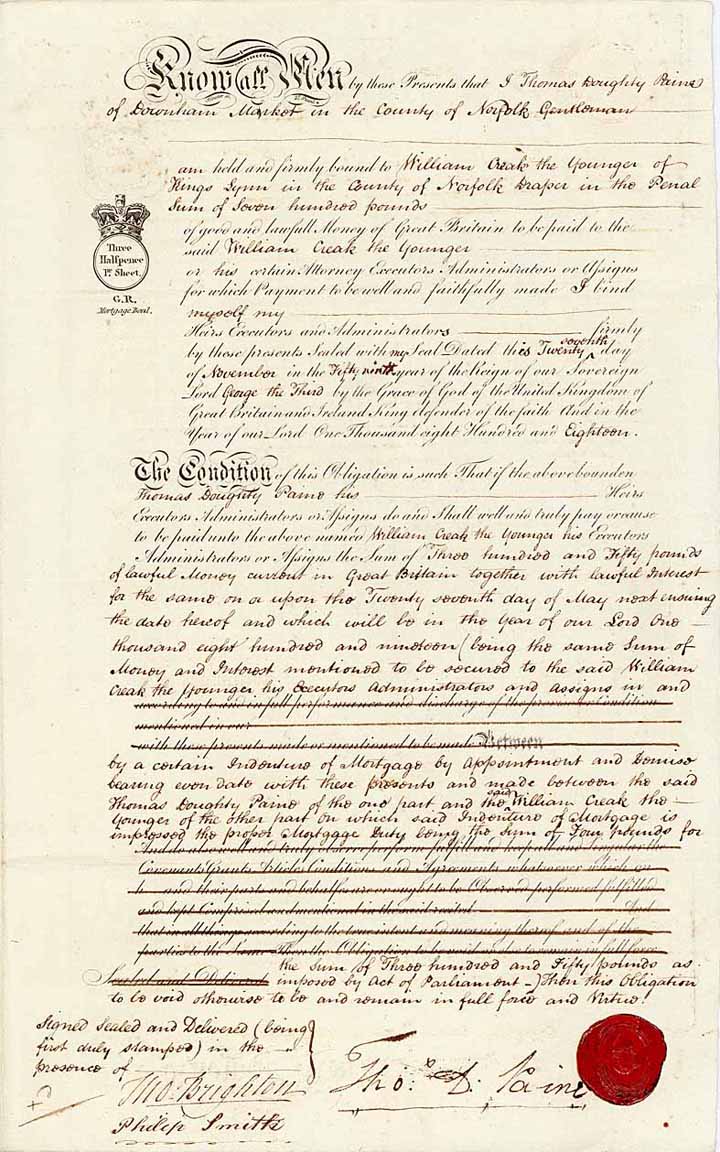 Know all Men by these Presents that I Thomas Doughty Paine
of Downham Market in the County of Norfolk Gentleman
am held and firmly bound to William Creak the Younger of
Kings Lynn in the County of Norfolk Draper in the Penal
Sum of Seven hundred pounds
of good and lawfull Money of Great Britain to be paid to the
said William Creak the Younger
or his certain Attorney Executors Administrators or Assigns
for which Payment to be well and faithfully made I bind
myself my
Heirs Executors and Administrators firmly
by these presents Sealed with my Seal Dated this Twenty seventh day
of November in the Fifty ninth year of the Reign of our Sovereign
Lord George the Third by the Grace of God of the United Kingdom of
Great Britain and Ireland King defender of the faith And in the
Year of our Lord One Thousand eight Hundred and Eighteen.
Three
Halfpence
Pr. Sheet.
G.R.
Mortgage Bond.
The Condition of this Obligation is such That if the above bounden
Thomas Doughty Paine his Heirs
Executors Administrators or Assigns do and Shall well and truly pay or cause
to be paid unto the above named William Creak the Younger his Executors
Administrators or Assigns the Sum of Three hundred and Fifty pounds
of lawful Money current in Great Britain together with lawful Interest
for the same on or upon the Twenty seventh day of May next ensuing
the date hereof and which will be in the Year of our Lord One
thousand eight hundred and nineteen (being the same Sum of
Money and Interest mentioned to be secured to the said William
Creak the younger his Executors Administrators and Assigns in and
according to and in full performance and discharge of the proviso or Condition
mentioned in our
with these presents made or mentioned to be made Between
by a certain Indenture of Mortgage by Appointment and Demise
bearing even date with these presents and made between the said
Thomas Doughty Paine of the one part and the said William Creak the
Younger of the other part on which said Indenture of Mortgage is
impressed the proper Mortgage Duty being the Sum of Four pounds for
And do also well and truly observe perform fulfill and keep all and singular the
Covenants Grants Articles Conditions and Agreements whatsoever which on
h and their parts and behalfs are or ought to be Observed performed fulfilled
and kept Comprised and mentioned in the said recited And
that in all things according to the true intent and meaning thereof and of the
parties to the Same Then the Obligation to be void or else to remain in full force
the Sum of Three hundred and Fifty pounds as
Sealed and Delivered imposed by Act of Parliament -) Then this Obligation
to be void otherwise to be and remain in full force and Virtue.
Signed Sealed and Delivered (being
first duly stamped) in the
presence of
Tho. Brighton
Philip Smith
Tho.s D. Paine